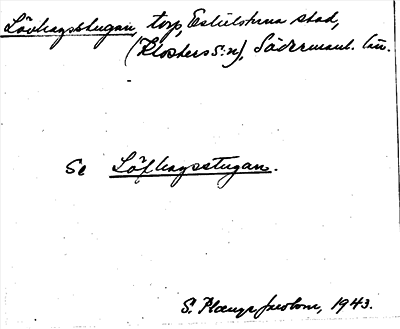 Lövhagsstugan, torp, Eskilstuna stad,
(Klosters s:n), Södermanl. län.
Se Löfhagsstugan.
S. 1943.